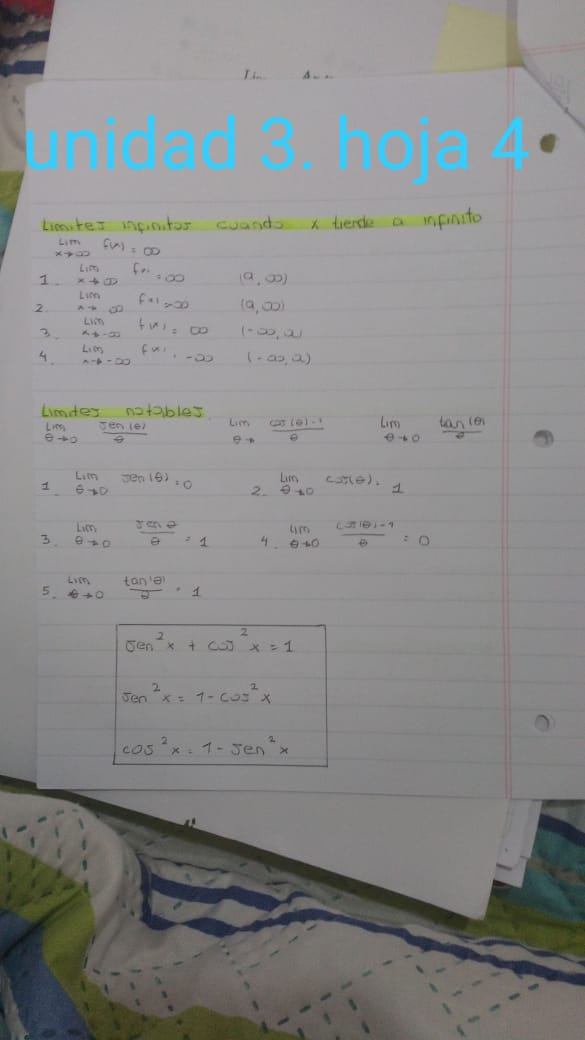 unidad 3. hoja 4
Limites infinitos cuando x tiende a infinito
Lim x→∞ f(x) = ∞
1. Lim x→∞ f(x) = ∞ (a, ∞)
2. Lim x→∞ f(x) = ∞ (a, ∞)
3. Lim x→-∞ f(x) = ∞ (-∞, a)
4. Lim x→-∞ f(x) = -∞ (-∞, a)
Limites notables.
Lim θ→0 sen(θ)/θ Lim θ→ cos(θ)-1/θ Lim θ→0 tan(θ)/θ
1. Lim θ→0 sen(θ) = 0 2. Lim θ→0 cos(θ) = 1
3. Lim θ→0 sen θ/θ = 1 4. Lim θ→0 cos(θ)-1/θ = 0
5. Lim θ→0 tan(θ)/θ = 1
sen²x + cos²x = 1
sen²x = 1 - cos²x
cos²x = 1 - sen²x